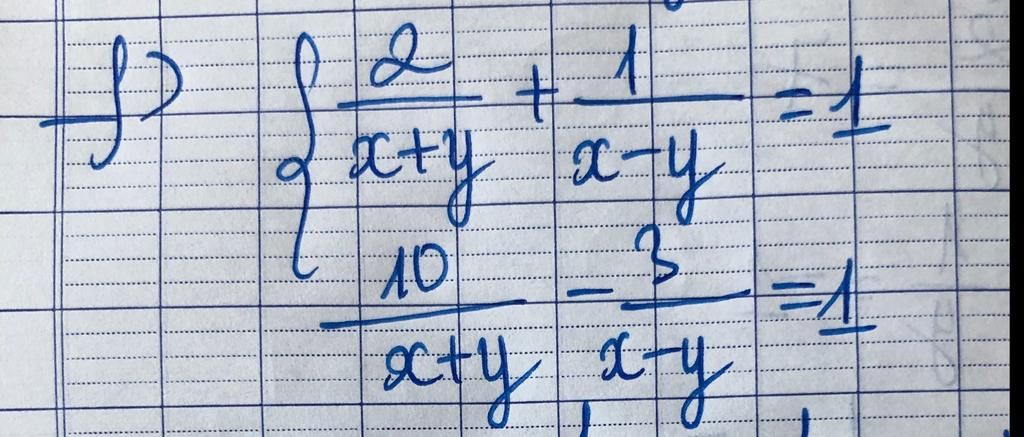 f) { 2/(x+y) + 1/(x-y) = 1
10/(x+y) - 3/(x-y) = 1